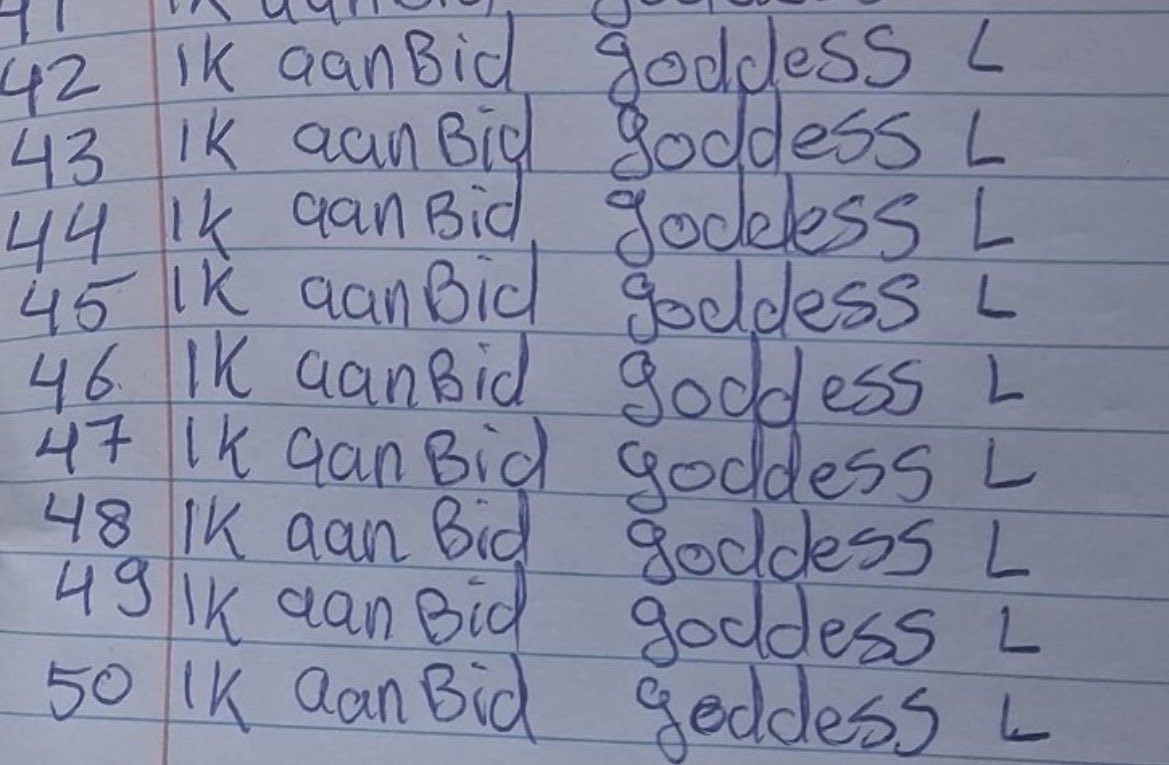 41 IK aanBid goddess
42 IK aanBid goddess L
43 IK aanBid goddess L
44 Ik aanBid goddess L
45 IK aanBid goddess L
46. IK aanBid goddess L
47 IK aanBid goddess L
48 IK aan Bid goddess L
49 IK aan Bid goddess L
50 IK aanBid geddess L